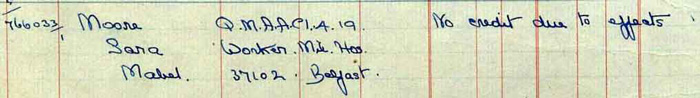 766033/1 Moore Q.M.A.A.C. 1.4.19. No credit due to effects.
Sara Worker. Mil. Hos.
Mabel. 37102. Belfast.